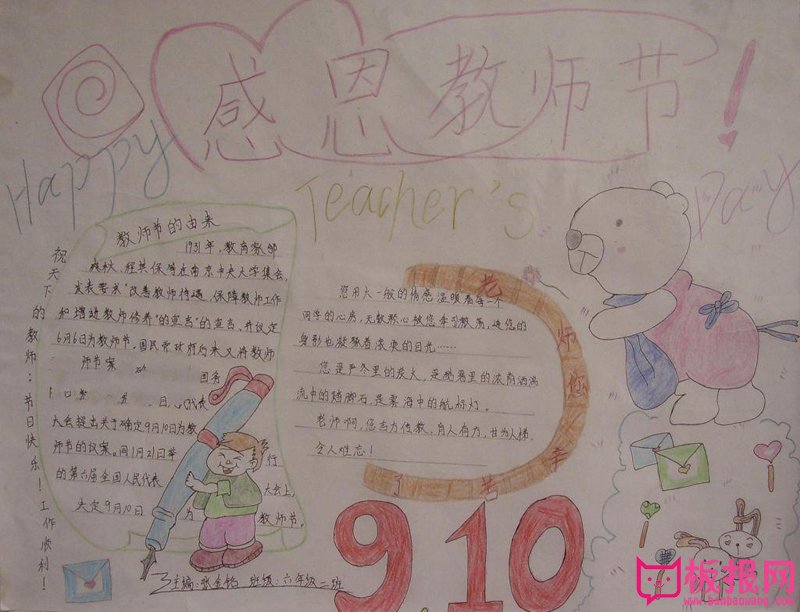 感恩教师节!
Happy Teacher's Day
祝天下的教师:节日快乐!工作顺利!
教师节的由来
1931年,教育教邰
爽秋、程其保等在南京中央大学集会,
发表要求"改善教师待遇,保障教师工作
和增进教师修养"的宣言"的宣言,并议定
6月6日为教师节。国民党政府后来又将教师
师节案
国务
日
大会提出关于确定9月10日为教
师节的议案。同1月21日举行
的第六届全国人民代表大会上,
决定9月10日为教师节。
老师您辛苦了
您用火一般的情感温暖着每一个
同学的心房,无数颗心被您牵引激荡,连您的
身影也凝聚着哀哀的目光……
您是严冬里的炭火,是酷暑里的浓荫洒湍
流中的踏脚石,是雾海中的航标灯。
老师啊,您言力传教,育人有方,甘为人梯,
令人难忘!
910
主编:张金铭 班级:六年级二班
板报网
www.banbaowang.com